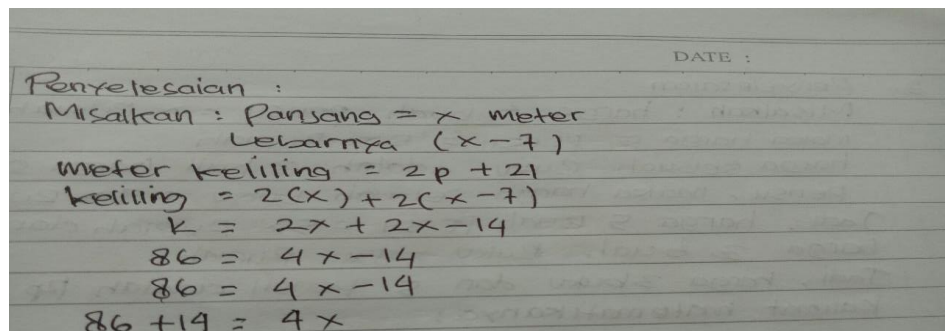 DATE :
Penyelesaian :
Misalkan : Panjang = x meter
Lebarnya (x - 7)
meter keliling = 2p + 2l
keliling = 2(x) + 2(x - 7)
k = 2x + 2x - 14
86 = 4x - 14
86 = 4x - 14
86 + 14 = 4x